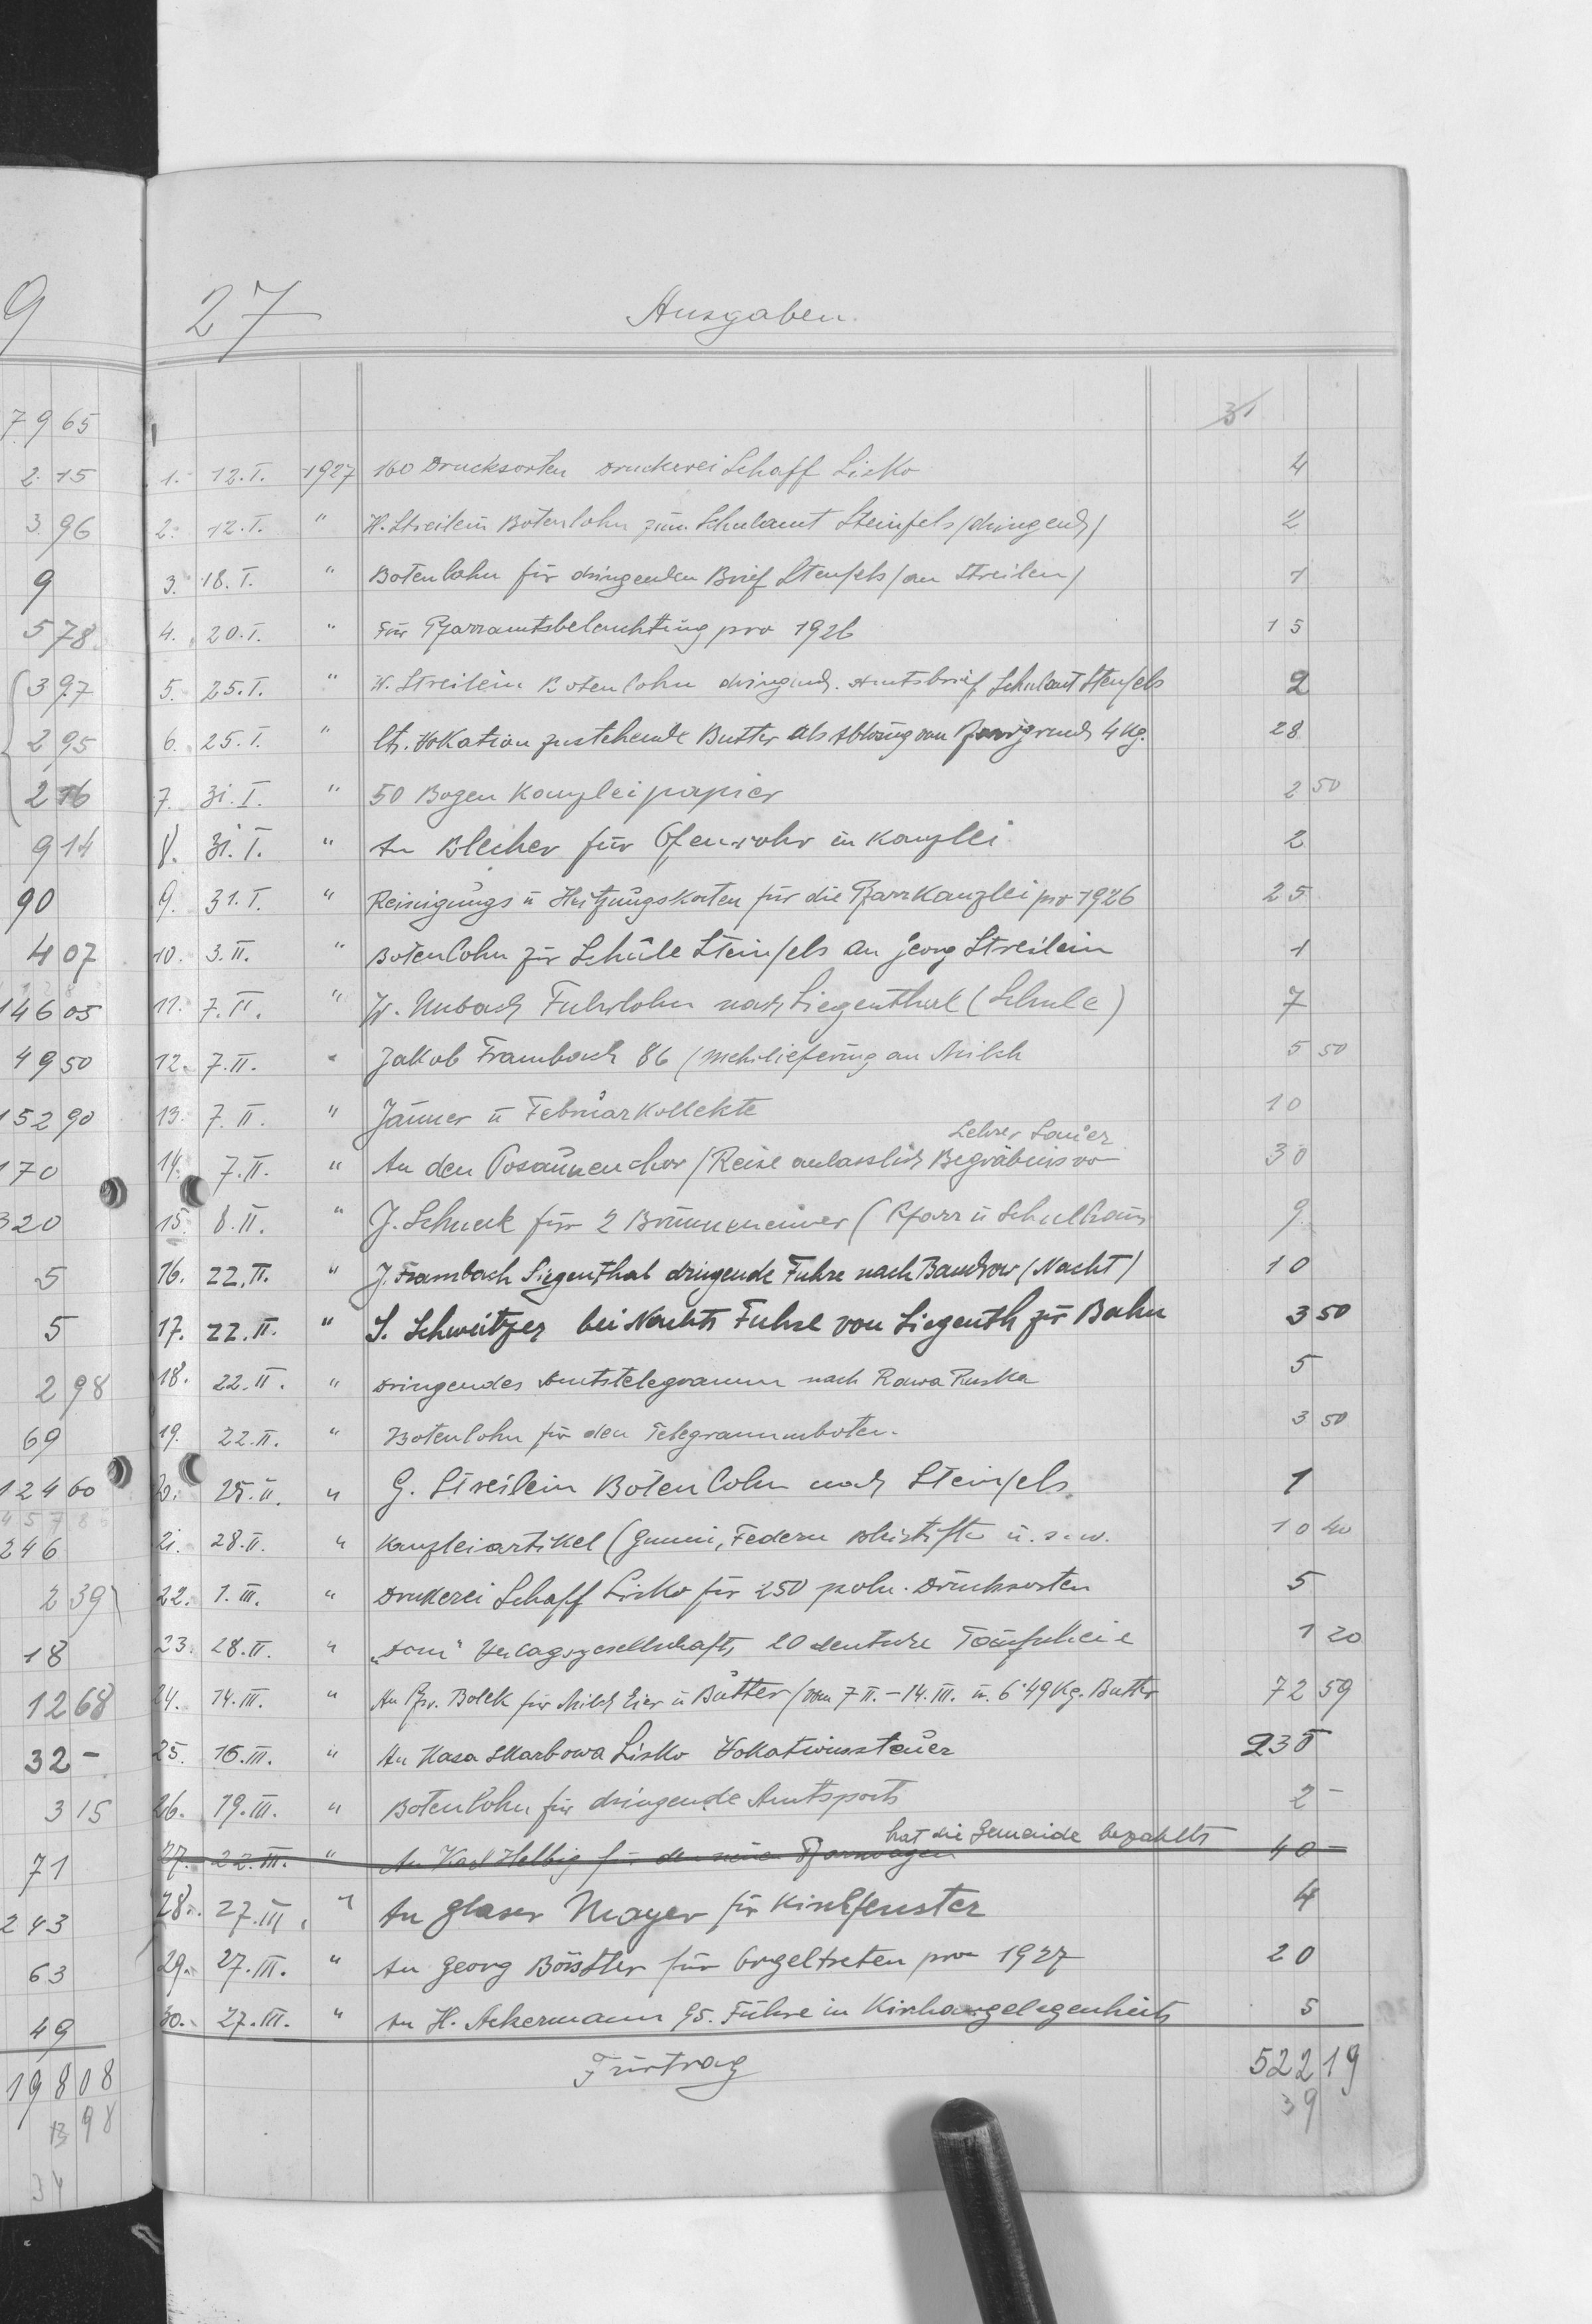 9
7965
2 15
3 96
9
5 78
3 97
2 95
2 16
9 14
90
4 07
146 05
49 50
152 90
1 70
3 20
5
5
2 98
69
124 60
2 46
2 39
18
12 68
32 -
3 15
71
2 43
63
49
198 08
13 98
34
27 Ausgaben.
31
1. 12.I. 1927 160 Drucksorten Druckerei Schaff Lisko 4
2. 12.I. " H. Streilein Botenlohn zum Schulamt Steinfels /dringend/ 2
3. 18.I. " Botenlohn für dringenden Brief Steinfels /an Streilein/ 1
4. 20.I. " Für Pfarramtsbeleuchtung pro 1926 15
5. 25.I. " H. Streilein Botenlohn dringend. Amtsbrief Schulamt Steinfels 2
6. 25.I. " lt. Vokation zustehende Butter als von 4 Kg. 28
7. 31.I. " 50 Bogen Kanzleipapier 2 50
8. 31.I. " An Blecher für Ofenrohr in Kanzlei 2
9. 31.I. " Reinigungs u Heitzungskosten für die Pfarrkanzlei pro 1926 25
10. 3.II. " Botenlohn zur Schule Steinfels an Georg Streilein 1
11. 7.II. " W. Uubach Fuhrlohn nach Siegenthal (Schule) 7
12. 7.II. " Jakob Frambach 86 /Mehrlieferung an Milch 5 50
13. 7.II. " Jänner u Februarkollekte 10
Lehrer Sauer
14. 7.II. " An den Posaunenchor /Reise anlasslich Begräbnis vo- 30
15. 8.II. " J. Schuck für 2 Brunneneimer (Pfarr u Schulhaus 9.
16. 22.II. " J. Frambach Siegenthal dringende Fuhre nach Bandrow /Nacht/ 10
17. 22.II. " S. Schweitzer bei Nachts Fuhre von Siegenth zur Bahn 3 50
18. 22.II. " Dringendes Amtstelegramm nach Rawa Ruska 5
19. 22.II. " Botenlohn für den Telegrammboten. 3 50
20. 25.II. " G. Streilein Botenlohn nach Steinfels. 1
21. 28.II. " Kanzleiartikel (Gummi, Federn Bleistifte u.s.w. 10 40
22. 1.III. " Druckerei Schaff Lisko für 250 poln. Drucksorten 5
23. 28.II. " „Dom" Verlagsgesellschaft, 20 deutsche Taufscheine 1 20
24. 14.III. " An Pfv. Bolek für Milch Eier u Butter /vom 7 II.-14.III. u. 6·49 Kg. Butter 72 59
25. 16.III. " An Kasa Skarbowa Lisko Vokationssteuer 235
26. 19.III. " Botenlohn für dringende Amtsposts 2 -
hat die Gemeinde bezahlt
27. 22.III. " An Karl Helbig für den neuen Pfarrwagen 40 -
28. 27.III. " An Glaser Mayer für Kirchfenster 4
29. 27.III. " An Georg Böistler für Orgeltreten pro 1927 20
30. 27.III. " An H. Ackermann 95. Fuhre in Kirchangelegenheit 5
Fürtrag 522 19
39